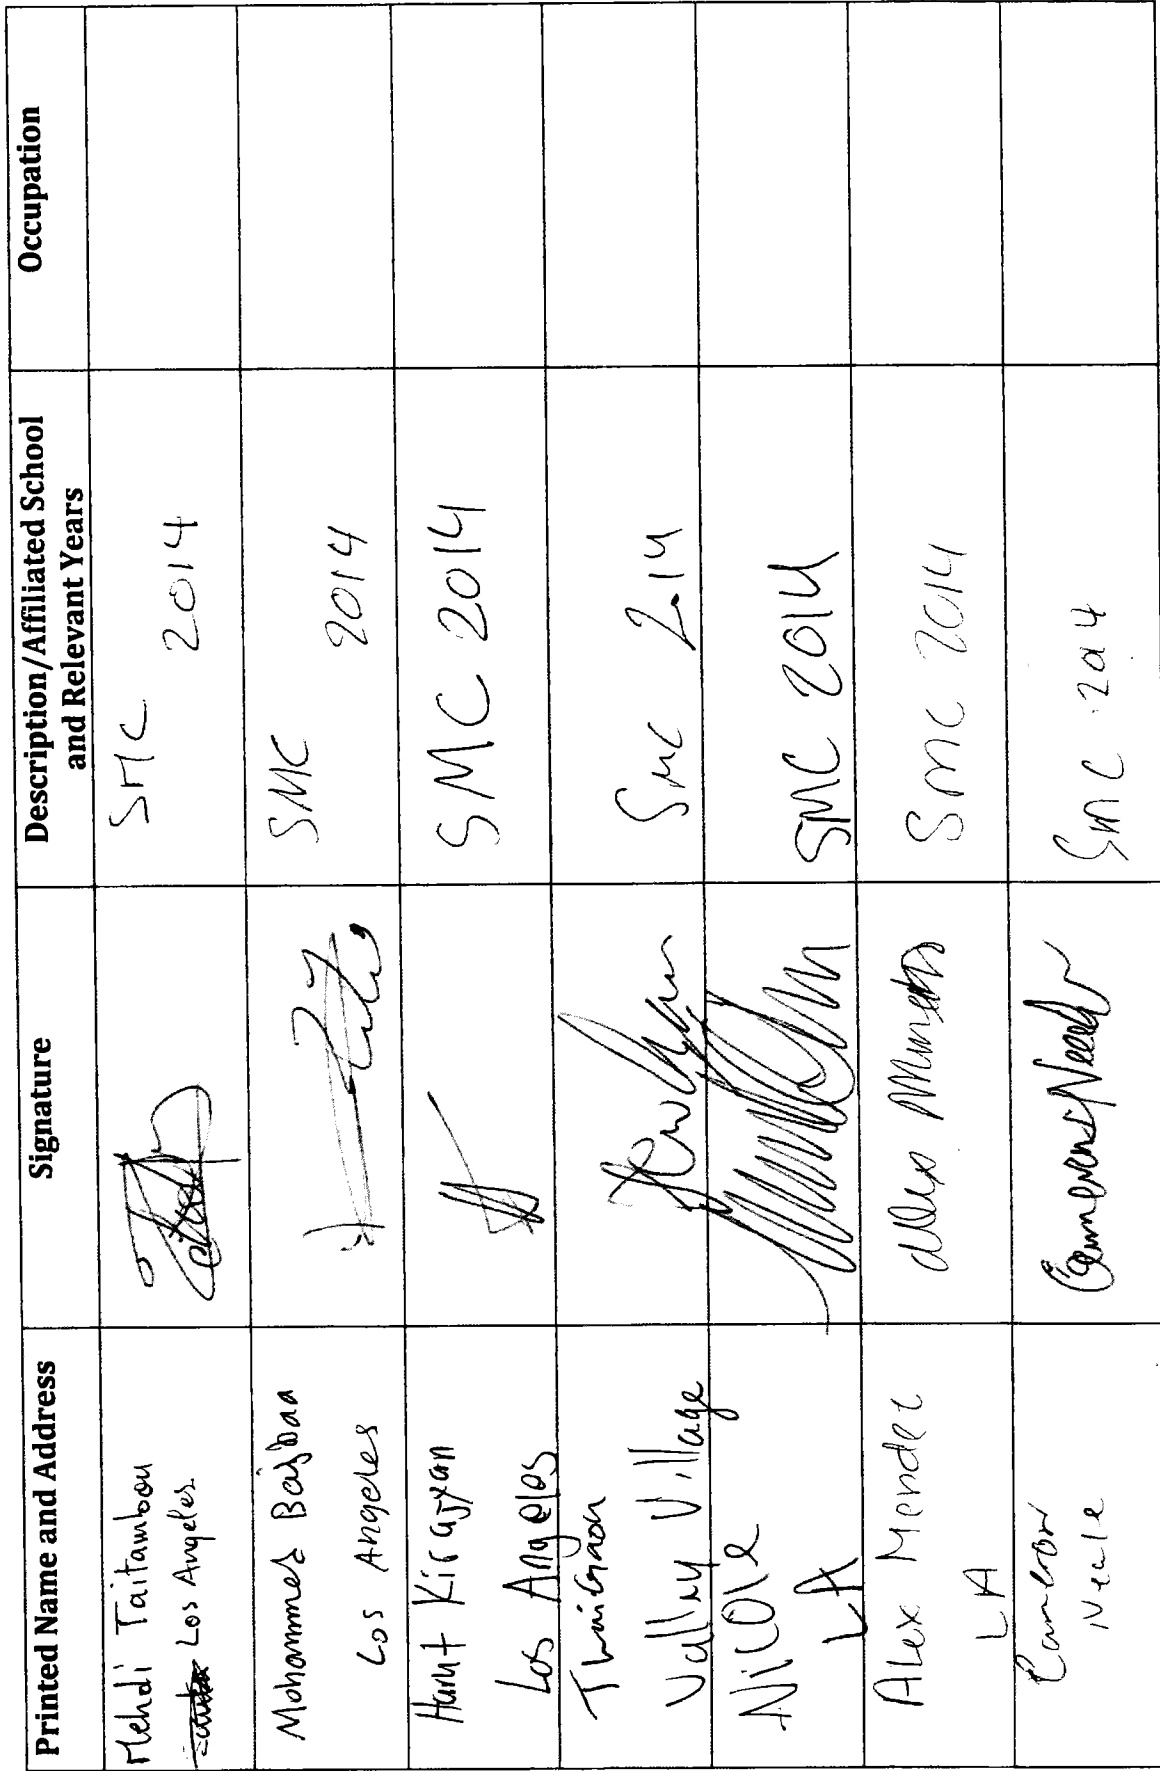 Printed Name and Address
Signature
Description/Affiliated School
and Relevant Years
Occupation
Mehdi Taitambou
Los Angeles
SMC
2014
Mohammed
Los Angeles
SMC
2014
Kirajyan
Los Angeles
SMC 2014
Valley Village
SMC 2014
NiCOle
LA
SMC 2014
Alex Mendez
LA
SMC 2014
Cameron
Neale
SMC 2014